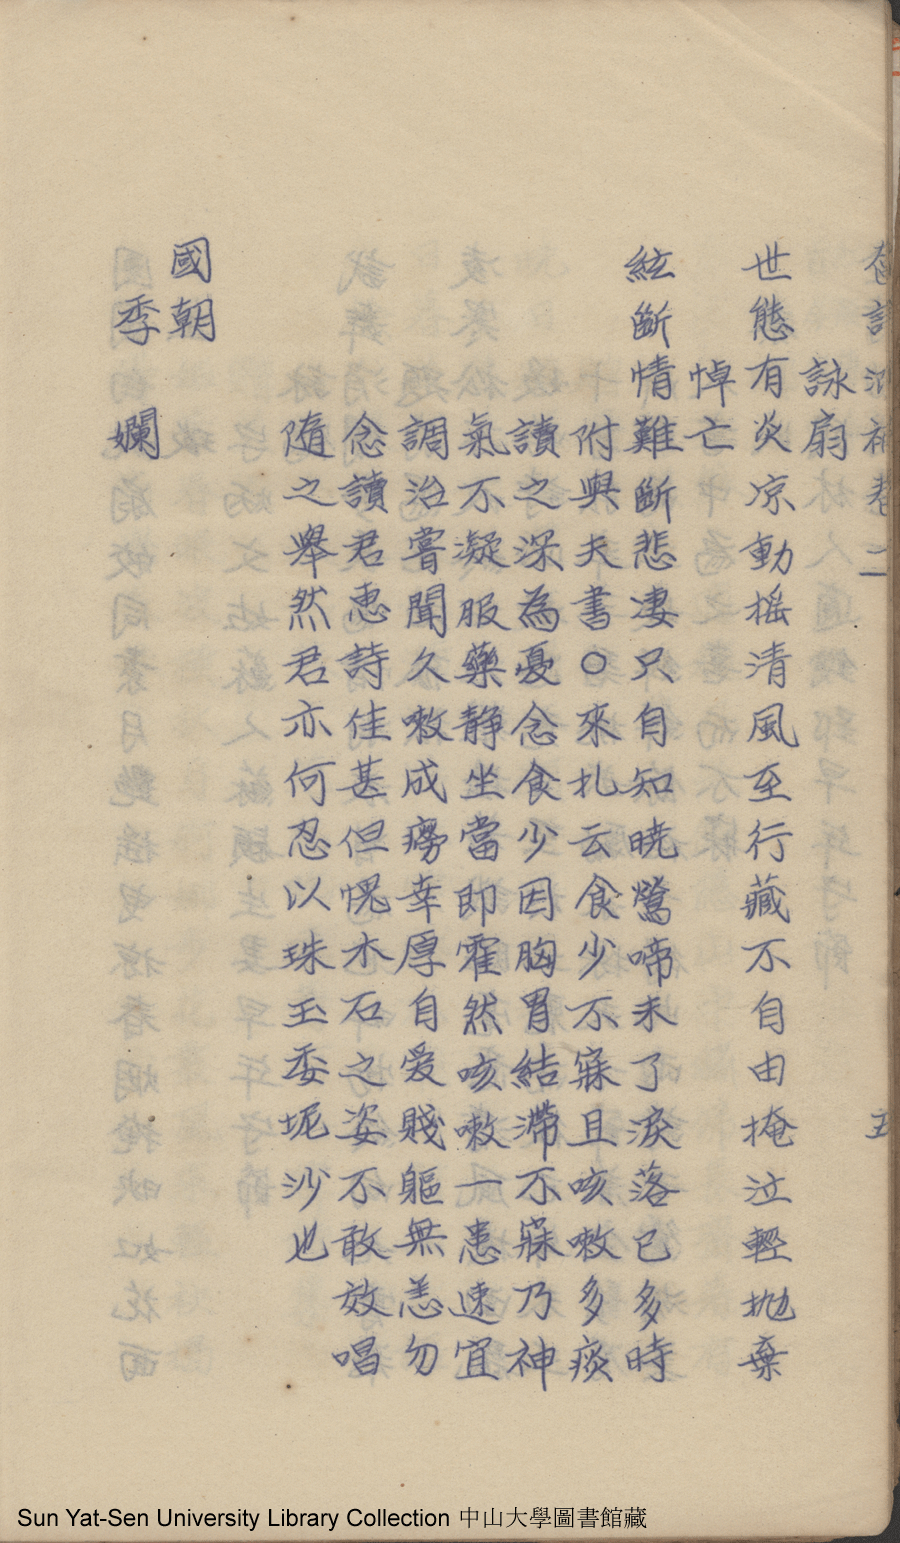 詠扇
世態有炎凉動搖清風至行藏不自由掩泣輕抛棄
悼亡
絃斷情難斷悲凄只自知曉鶯啼未了淚落已多時
附與夫書○來札云食少不寐且咳嗽多痰
讀之深為憂念食少因胸胃結滯不寐乃神
氣不凝服藥静坐當即霍然咳嗽一恙速宜
調治嘗聞久嗽成癆幸厚自爱賤軀無恙勿
念讀君惠詩佳甚但愧木石之姿不敢效唱
隨之舉然君亦何忍以珠玉委坭沙也
國朝
季嫻
Sun Yat-Sen University Library Collection 中山大學圖書館藏